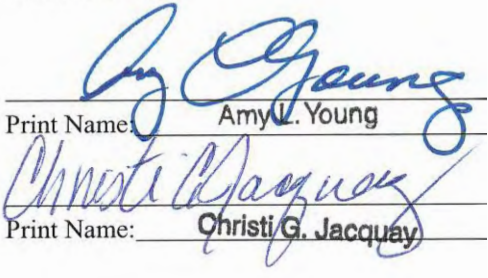 Amy L Young
Print Name: Amy L. Young
Christi G Jacquay
Print Name: Christi G. Jacquay